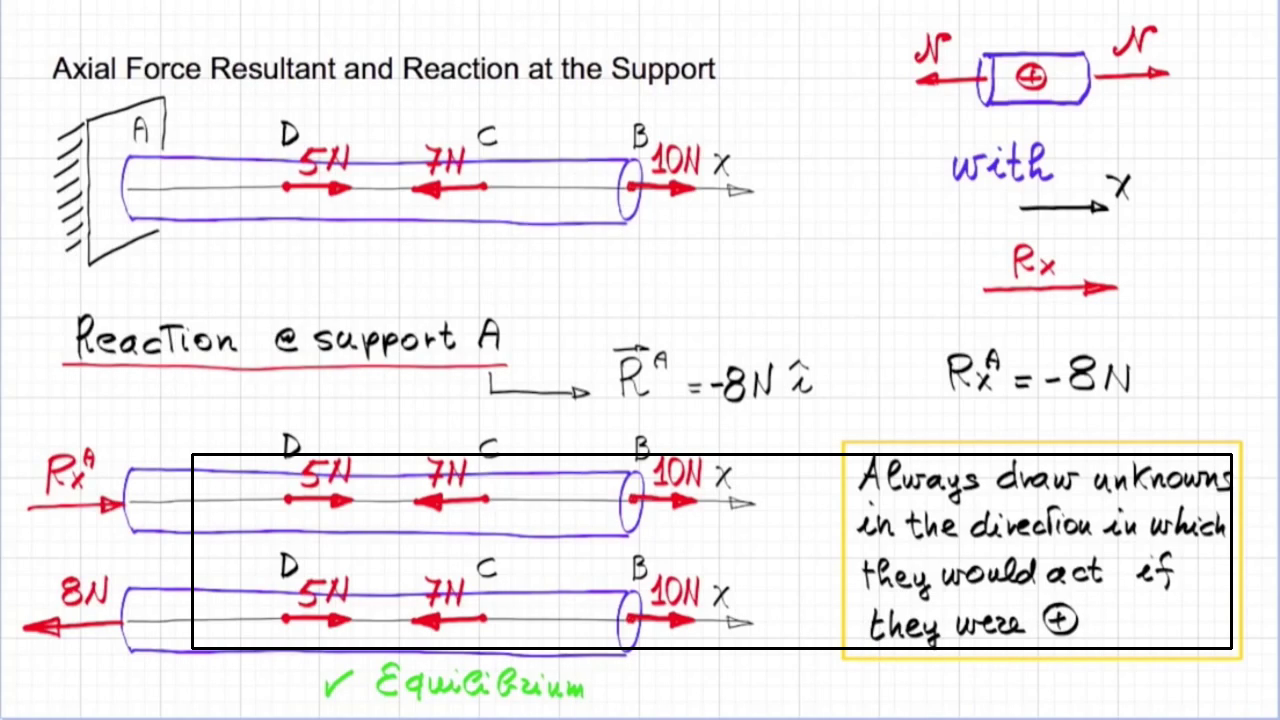 Axial Force Resultant and Reaction at the Support
N N
⊕
A D C B
5N 7N 10N x
with
x
Rx
Reaction @ support A
R⃗ᴬ = -8N î
Rxᴬ = -8N
D C B
Rxᴬ 5N 7N 10N x
D C B
8N 5N 7N 10N x
Always draw unknowns
in the direction in which
they would act if
they were ⊕
✓ Equilibrium